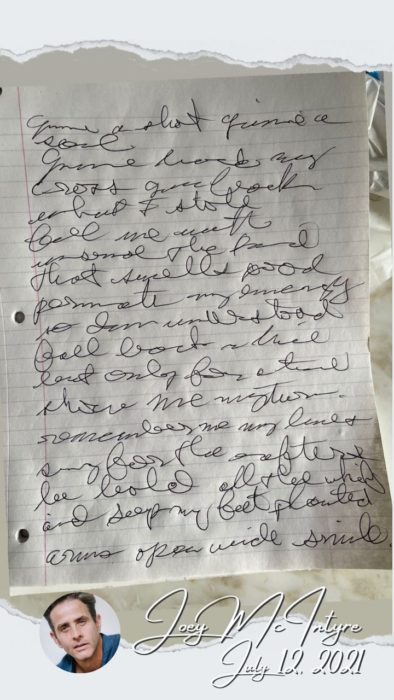 gimme a shot gimme a
soul
gimme back my
cross give back
what I stole
fill me with
the food
that smells good
permeate my energy
so I am understood
fall back a
but only for a time
show me my turn
remember me my lines
sing for the rafters
be bold all the while
and keep my feet planted
arms open wide smile.
Joey McIntyre
July 12, 2021